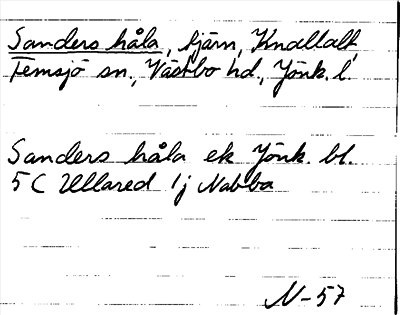 Sanders håla, tjärn, Knallalt,
Femsjö sn., Västbo hd., Jönk. l.
Sanders håla ek Jönk. bl.
5 C Ullared 1j Nabba
N-57